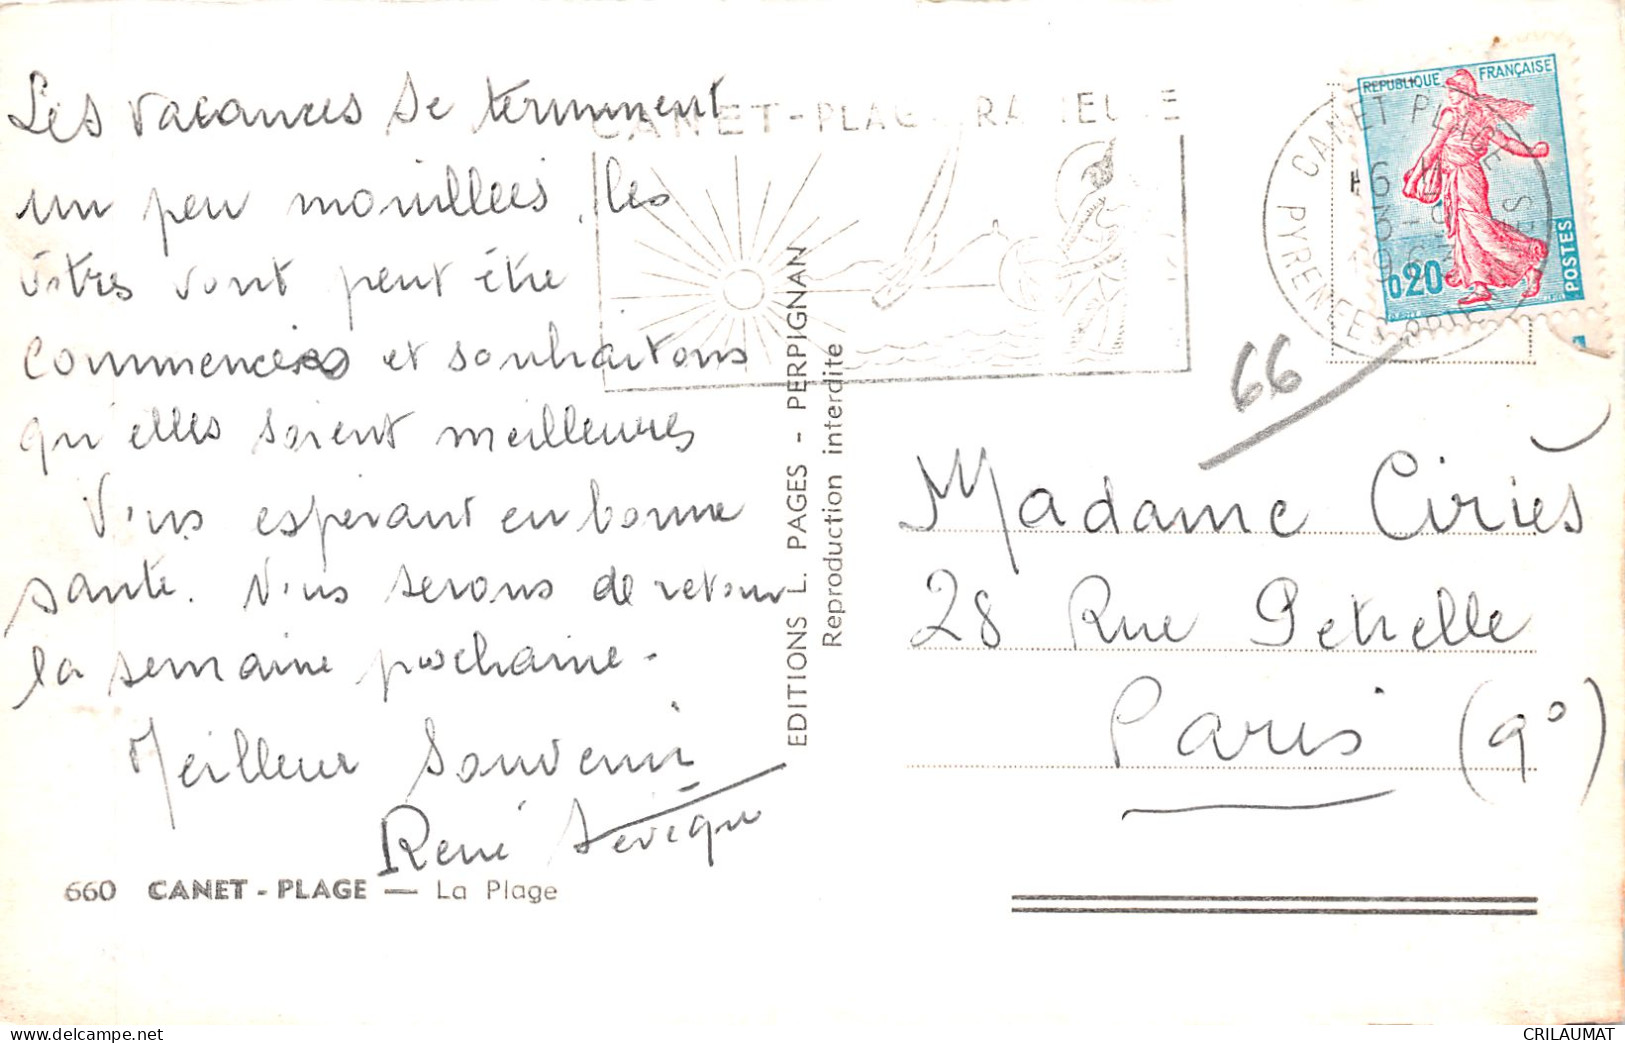 Les vacances se terminent
un peu mouillées, les
vôtres vont peut être
commencées et souhaitons
qu'elles soient meilleures
Vous espérant en bonne
santé. Nous serons de retour
la semaine prochaine.
Meilleur Souvenir
René
660 CANET-PLAGE — La Plage
EDITIONS L. PAGES - PERPIGNAN
Reproduction interdite
CANET-PLAGE RADIEUSE
CANET PLAGE
PYRENEES ORLES
REPUBLIQUE FRANÇAISE
0,20
POSTES
66
Madame Ciriès
28 Rue Petrelle
Paris (9°)
delcampe.net
CRILAUMAT